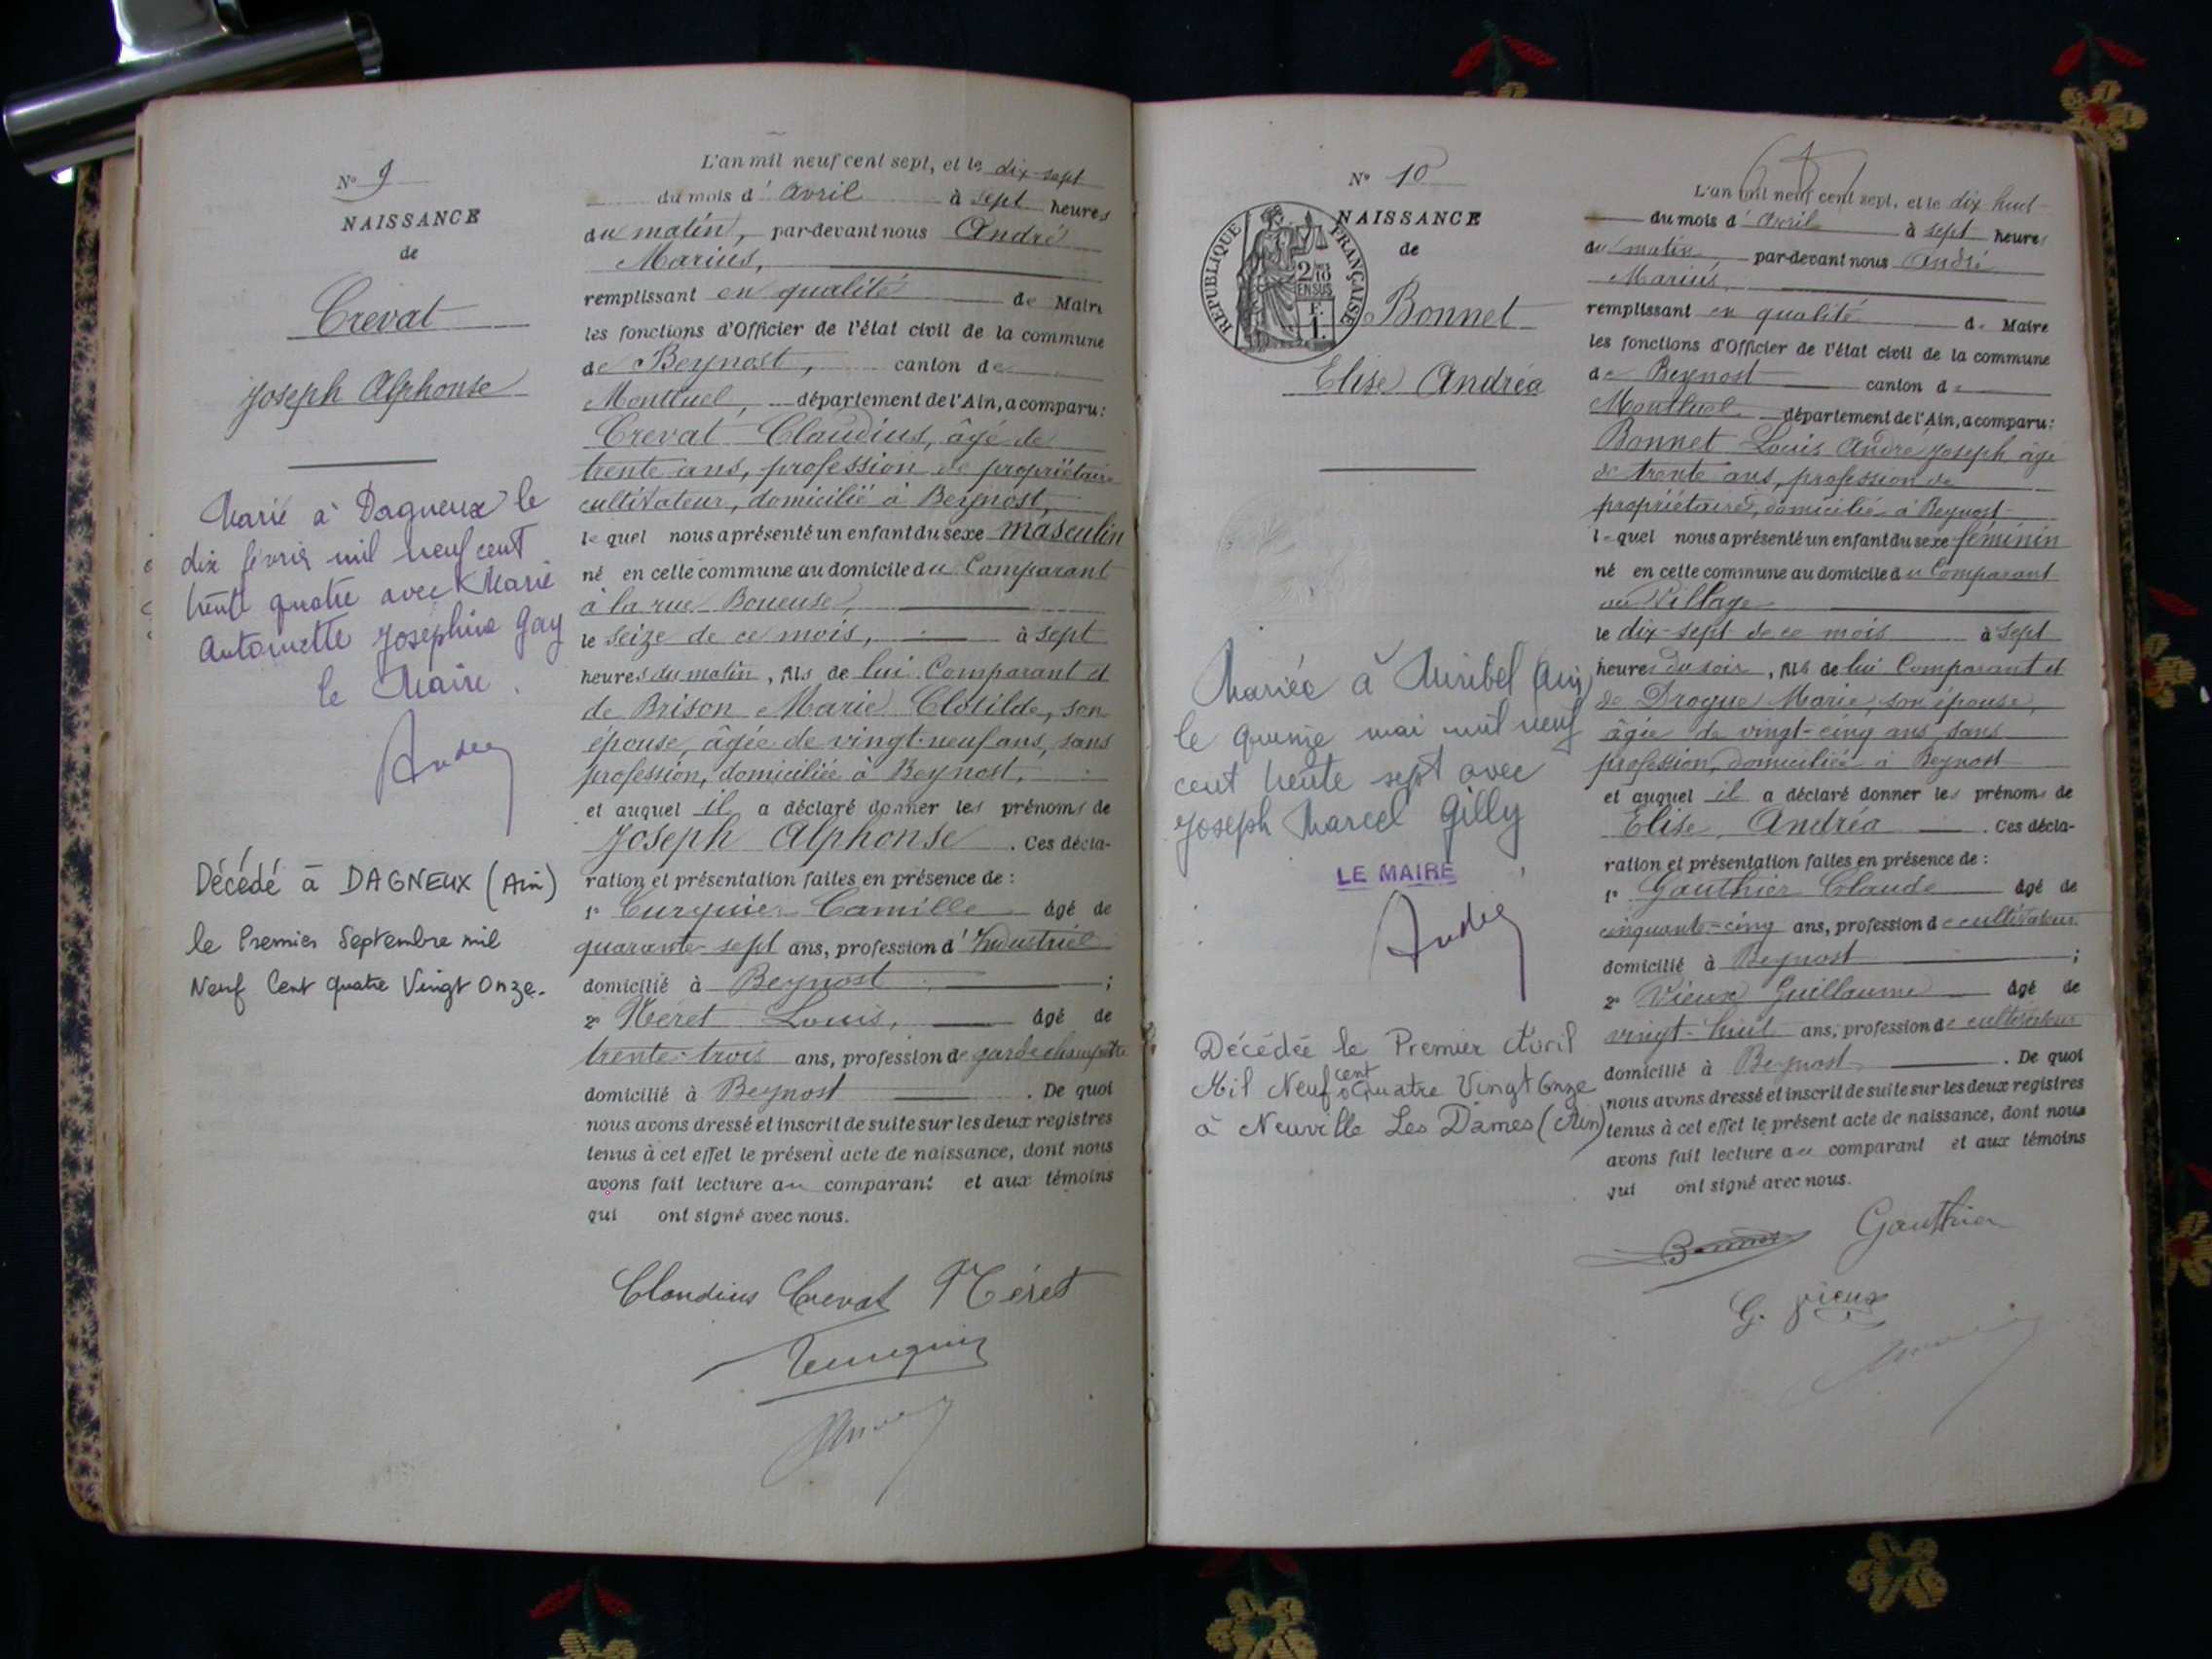 N° 9
NAISSANCE
de
Crevat
Joseph Alphonse
Marié à Dagneux le
dix février mil neuf cent
trente quatre avec Marie
Antoinette Joséphine Gay
le Maire
André
Décédé à DAGNEUX (Ain)
le Premier Septembre mil
Neuf Cent quatre Vingt Onze.
L'an mil neuf cent sept, et le dix-sept
du mois d'avril à sept heures
du matin, par-devant nous André
Marius,
remplissant en qualité de Maire
les fonctions d'Officier de l'état civil de la commune
de Beynost, canton de
Montluel, département de l'Ain, a comparu:
Crevat Claudius, âgé de
trente ans, profession de propriétaire
cultivateur, domicilié à Beynost,
lequel nous a présenté un enfant du sexe masculin
né en cette commune au domicile du Comparant
à la rue Boueuse,
le seize de ce mois, à sept
heures du matin, fils de lui Comparant et
de Brison Marie Clotilde, son
épouse, âgée de vingt-neuf ans, sans
profession, domiciliée à Beynost,
et auquel il a déclaré donner les prénoms de
Joseph Alphonse. Ces décla-
ration et présentation faites en présence de :
1° Turquier Camille âgé de
quarante-sept ans, profession d'Industriel
domicilié à Beynost ;
2° Néret Louis, âgé de
trente-trois ans, profession de garde champêtre
domicilié à Beynost. De quoi
nous avons dressé et inscrit de suite sur les deux registres
tenus à cet effet le présent acte de naissance, dont nous
avons fait lecture au comparant et aux témoins
qui ont signé avec nous.
Claudius Crevat Néret
N° 10
NAISSANCE
de
REPUBLIQUE FRANÇAISE
2/10
EN SUS
F.
1.
Bonnet
Elise Andréa
Mariée à Miribel (Ain)
le quinze mai mil neuf
cent trente sept avec
Joseph Marcel Gilly
LE MAIRE
André
Décédée le Premier Avril
cent
Mil Neuf Quatre Vingt Onze
à Neuville Les Dames (Ain)
L'an mil neuf cent sept, et le dix huit
du mois d'avril à sept heures
du matin, par-devant nous André
Marius,
remplissant en qualité de Maire
les fonctions d'Officier de l'état civil de la commune
de Beynost canton de
Montluel département de l'Ain, a comparu:
Bonnet Louis André Joseph, âgé
de trente ans, profession de
propriétaire, domicilié à Beynost
lequel nous a présenté un enfant du sexe féminin
né en cette commune au domicile du Comparant
au Village
le dix-sept de ce mois à sept
heures du soir, fils de lui Comparant et
de Drogue Marie, son épouse,
âgée de vingt-cinq ans sans
profession, domiciliée à Beynost
et auquel il a déclaré donner les prénoms de
Elise Andréa. Ces décla-
ration et présentation faites en présence de :
1° Gauthier Claude âgé de
cinquante-cinq ans, profession de cultivateur
domicilié à Beynost ;
2° Vieux Guillaume âgé de
vingt-huit ans, profession de cultivateur
domicilié à Beynost. De quoi
nous avons dressé et inscrit de suite sur les deux registres
tenus à cet effet le présent acte de naissance, dont nous
avons fait lecture au comparant et aux témoins
qui ont signé avec nous.
Bonnet Gauthier
G. Vieux